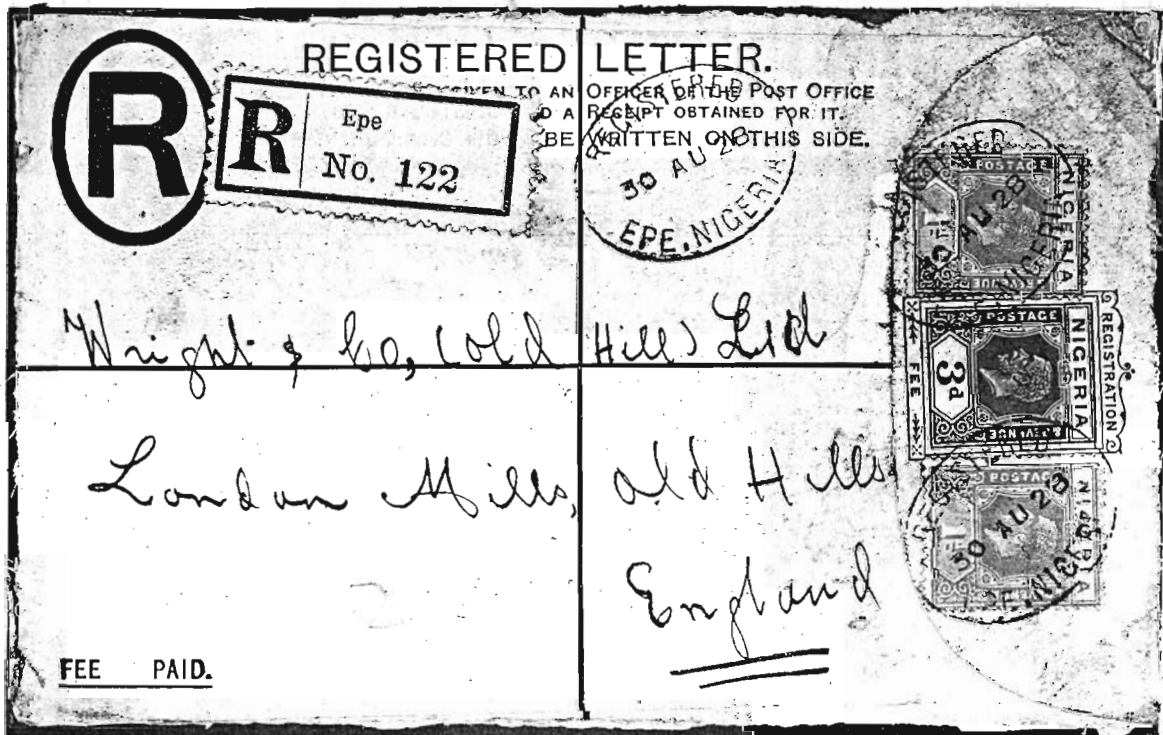 REGISTERED LETTER.
TO AN OFFICER OF THE POST OFFICE
D A RECEIPT OBTAINED FOR IT.
BE WRITTEN ON THIS SIDE.
R
R
Epe
No. 122
REGISTERED
30 AU 28
EPE. NIGERIA
REGISTERED
AU 28
NIGERIA
POSTAGE
NIGERIA
POSTAGE
NIGERIA
& REVENUE
3d
REGISTRATION
FEE
REGISTERED
30 AU 28
POSTAGE
NIGERIA
Wright & Co, (Old Hill) Ltd
London Mills, Old Hills
England
FEE PAID.